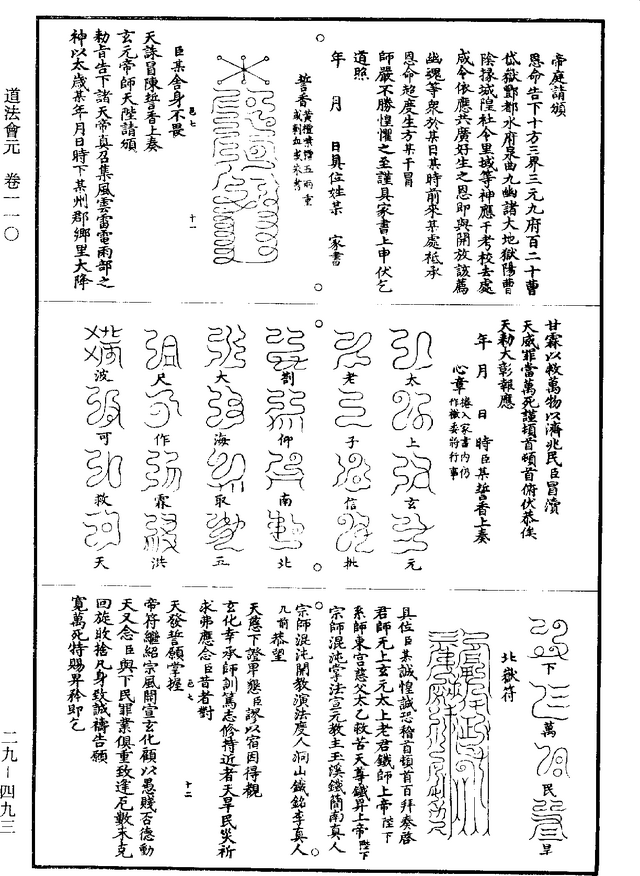 道法會元 卷一一〇
二九－四九三
帝庭請頒
恩命告下十方三界三元九府百二十曹
岱嶽酆都水府泉曲九幽諸大地獄陽曹
陰掾城隍社令里域等神應干考校去處
咸令依應共廣好生之恩即與開放該薦
幽魂等衆於某日某時前來某處祗承
恩命超度生方某干冒
師嚴不勝惶懼之至謹具家書上申伏乞
道照
年 月 日具位姓某 家書
誓香
臣某舍身不畏
天誅冒陳誓香上奏
玄元帝師天陛請頒
勑肯告下諸天帝真召集風雲雷電雨部之
神以太歲某年月日時下某州郡鄉里大降
邑七 十一
甘霖以救萬物以濟兆民臣冒瀆
天威罪當萬死謹頓首頓首俯伏恭俟
天勑大彰報應
年 月 日 時臣某誓香上奏
心章 捲入家書内仍作檄委前行事
太 上 玄 元
老 子 信 批
劄 仰 南 北
大 海 取 五
尺 作 霖 洪
波 可 救 天
下 萬 民 旱
北嶽符
具位臣某誠惶誠恐稽首頓首百拜奏啓
君師元上玄元太上老君鐵師上帝陛下
系師東宮慈父太乙救苦天尊鐵昇上帝陛下
宗師混沌掌法宣元教主玉溪鐵簡南真人
宗師混沌開教演法度人洞山鐵銘李真人
几前恭望
天慈下證軍態臣謬以宿因得觀
玄化幸承師訓篤志修持近者天旱民災祈
求弗應念臣昔者對
天發誓願掌握
邑七 十二
帝符繼紹宗風開宣玄化顧以愚賤否德動
天又念臣與下民罪業俱重致逢厄數未克
回旋收捨凡身致誠禱告願
寬萬死特賜昇矜即乞